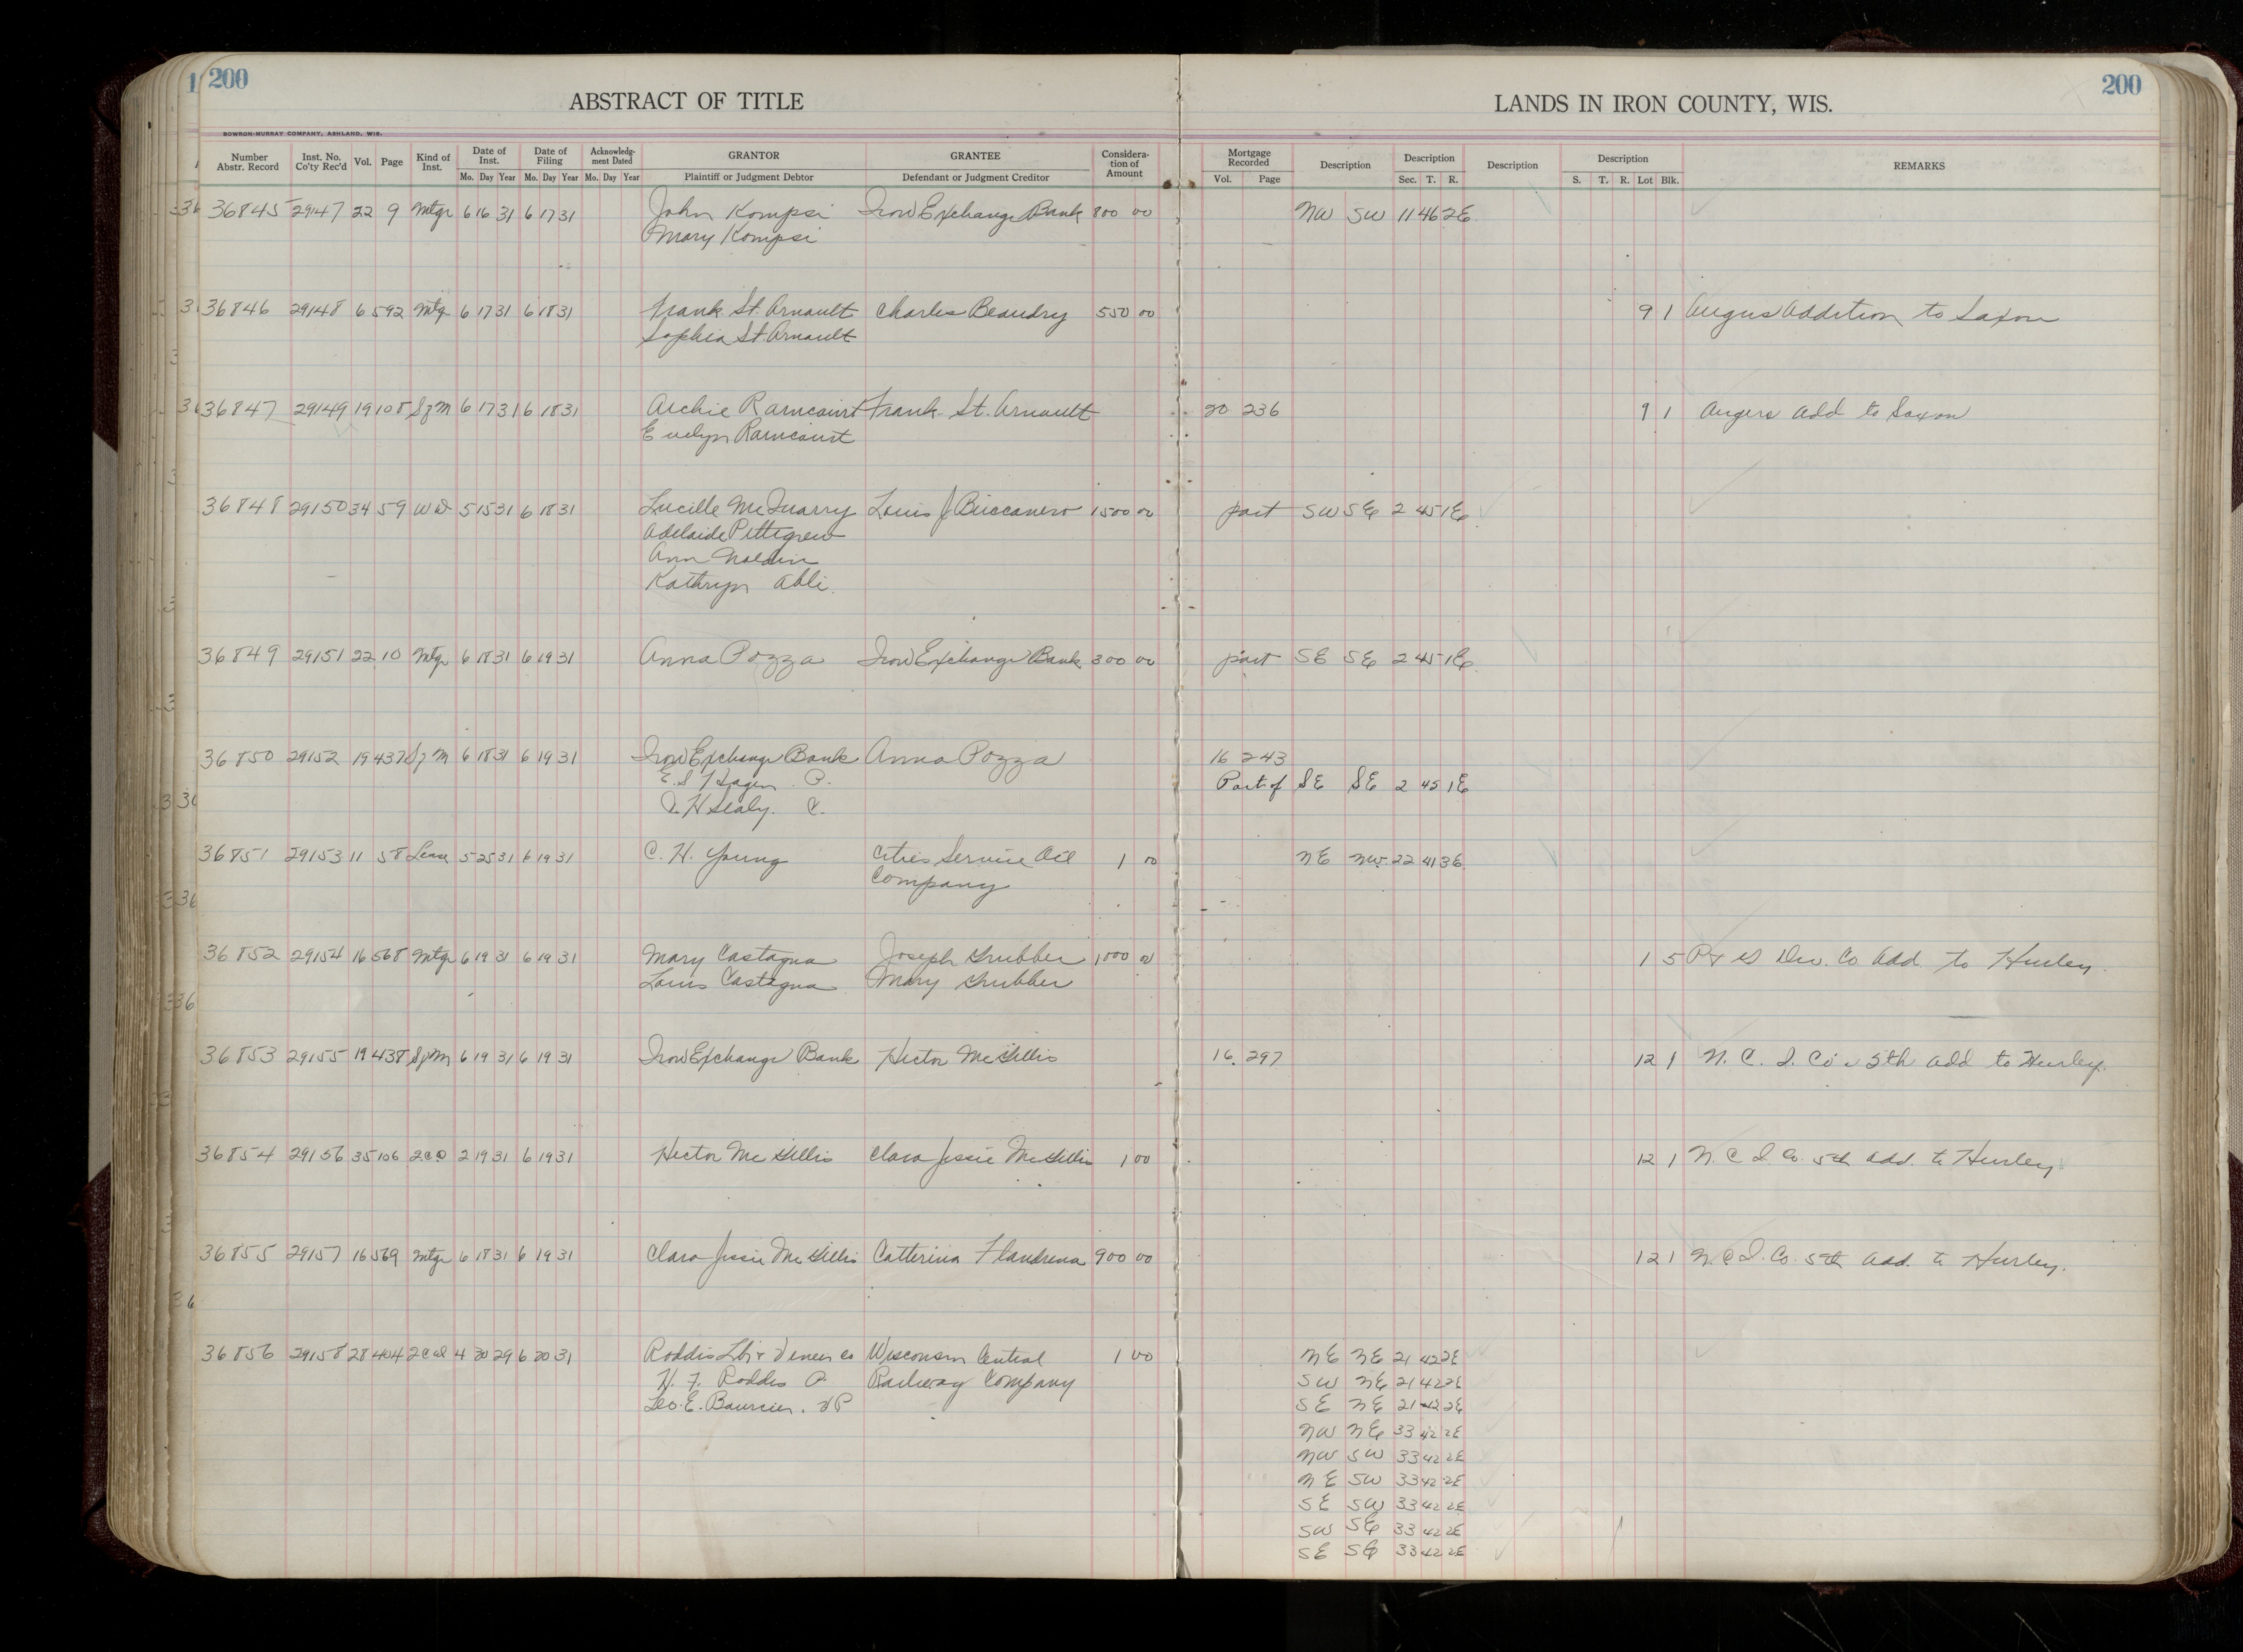 200
ABSTRACT OF TITLE
LANDS IN IRON COUNTY, WIS.
200
BOWRON-MURRAY COMPANY, ASHLAND, WIS.
Number Abstr. Record Inst. No. Co'ty Rec'd Vol. Page Kind of Inst. Date of Inst. Mo. Day Year Date of Filing Mo. Day Year Acknowledgment Dated Mo. Day Year GRANTOR Plaintiff or Judgment Debtor GRANTEE Defendant or Judgment Creditor Consideration of Amount Mortgage Recorded Vol. Page Description Description Sec. T. R. Description Description S. T. R. Lot Blk. REMARKS
36845 29147 22 9 Mtge 6 16 31 6 17 31 John Kompsi Iron Exchange Bank 800 00 NW SW 11 46 2E
Mary Kompsi
36846 29148 6 592 Mtg 6 17 31 6 18 31 Frank St. Arnault Charles Beaudry 550 00 9 1 Angus Addition to Saxon
Sophia St. Arnault
36847 29149 19 108 S of M 6 17 31 6 18 31 Archie Ramcourt Frank St. Arnault 20 236 9 1 Angers Add to Saxon
Evelyn Ramcourt
36848 29150 34 59 WD 5 15 31 6 18 31 Lucille McQuarry Louis J Buccanero 1500 00 part SW SE 2 45 1E
Adelaide Pettigrew
Ann
Kathryn Abli.
36849 29151 22 10 Mtge 6 18 31 6 19 31 Anna Pozza Iron Exchange Bank 300 00 part SE SE 2 45 1E
36850 29152 19 437 S of M 6 18 31 6 19 31 Iron Exchange Bank Anna Pozza 16 243
E. S. P. Part of SE SE 2 45 1E
H Sealy. C.
36851 29153 11 58 Lease 5 25 31 6 19 31 C. H. Young Cities Service Oil 1 00 NE NW 22 41 3E
Company
36852 29154 16 568 Mtge 6 19 31 6 19 31 Mary Castagna Joseph Grubber 1000 00 1 5 P & G Dev. Co Add to Hurley.
Louis Castagna Mary Grubber
36853 29155 19 438 S of M 6 19 31 6 19 31 Iron Exchange Bank Hector McGillis 16 297 12 1 N. C. I. Co's 5th Add to Hurley.
36854 29156 35 106 2CD 2 19 31 6 19 31 Hector McGillis Clara Jessie McGillis 1 00 12 1 N. C I. Co. 5th Add. to Hurley
36855 29157 16 569 Mtge 6 18 31 6 19 31 Clara Jessie McGillis Catterina Flandrena 900 00 12 1 N. C I. Co. 5th Add. to Hurley.
36856 29158 28 404 4 30 29 6 20 31 Roddis Lbr & Veneer Co Wisconsin Central 1 00 NE NE 21 42 2E
H. F. Roddis P. Railway Company SW NE 21 42 2E
Leo. E. Boursier. VP SE NE 21 42 2E
NW NE 33 42 2E
NW SW 33 42 2E
NE SW 33 42 2E
SE SW 33 42 2E
SW SE 33 42 2E
SE SE 33 42 2E